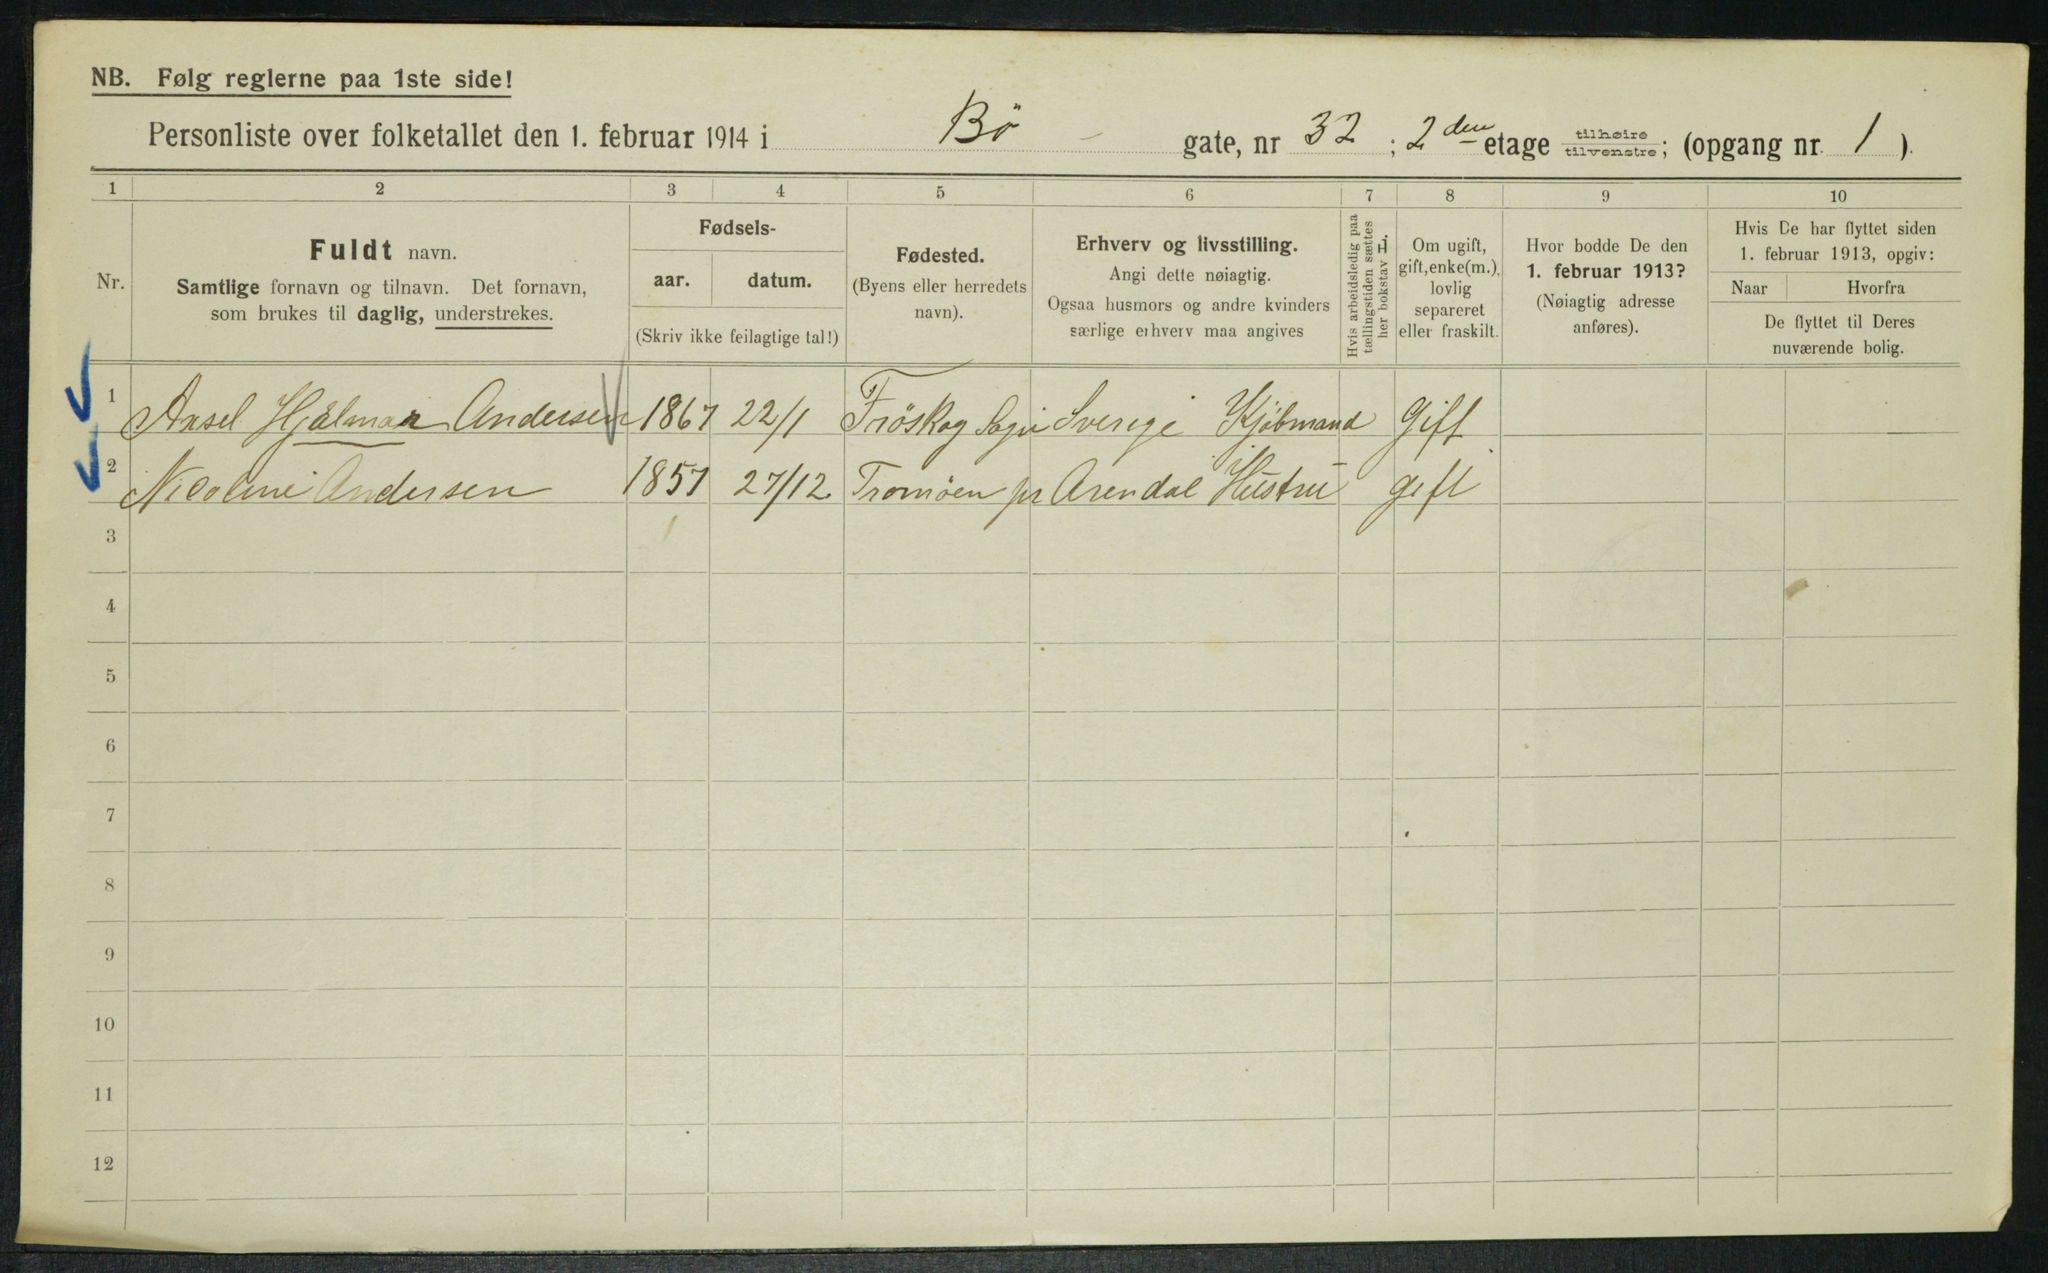 NB. Følg reglerne paa 1ste side!
Personliste over folketallet den 1. februar 1914 i Bö gate, nr 32 ; 2den etage tilhøire tilvenstre; (opgang nr. 1 ).
1 2 3 4 5 6 7 8 9 10
Nr.
Fuldt navn.
Samtlige fornavn og tilnavn. Det fornavn,
som brukes til daglig, understrekes.
Fødsels-
aar. datum.
(Skriv ikke feilagtige tal!)
Fødested.
(Byens eller herredets
navn).
Erhverv og livsstilling.
Angi dette nøiagtig.
Ogsaa husmors og andre kvinders
særlige erhverv maa angives
Hvis arbeidsledig paa
tællingstiden sættes
her bokstav L.
Om ugift,
gift, enke(m.),
lovlig
separeret
eller fraskilt.
Hvor bodde De den
1. februar 1913?
(Nøiagtig adresse
anføres).
Hvis De har flyttet siden
1. februar 1913, opgiv:
Naar Hvorfra
De flyttet til Deres
nuværende bolig.
1 Axsel Hjalmar Andersen 1867 22/1 Fröskog Sverige Kjöbmand Gift
2 Nicoline Andersen 1857 27/12 Tromöen pr Arendal Hustru gift
3
4
5
6
7
8
9
10
11
12